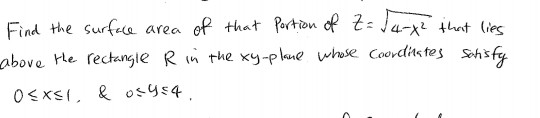 Find the surface area of that Portion of Z=√4-x² that lies
above the rectangle R in the xy-plane whose Coordinates Satisfy
0≤x≤1, & 0≤y≤4.